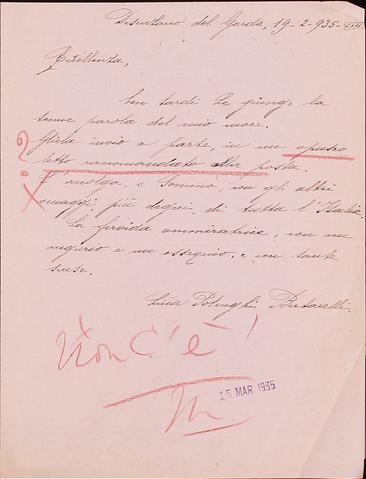 Desenzano del Garda, 19-2-935-XIII
Eccellenza,
ben tardi Le giunge la
tenue parola del mio cuore.
Gliela invio a parte, in un opusco
letto raccomandato alla posta.
L'accolga, o Sommo, con gli altri
omaggi più degni, di tutta l'Italia.
La fervida ammiratrice, con un
augurio e un ossequio, e con tante
scuse.
Lina Bertarelli.
Non c'è!
15 MAR 1935